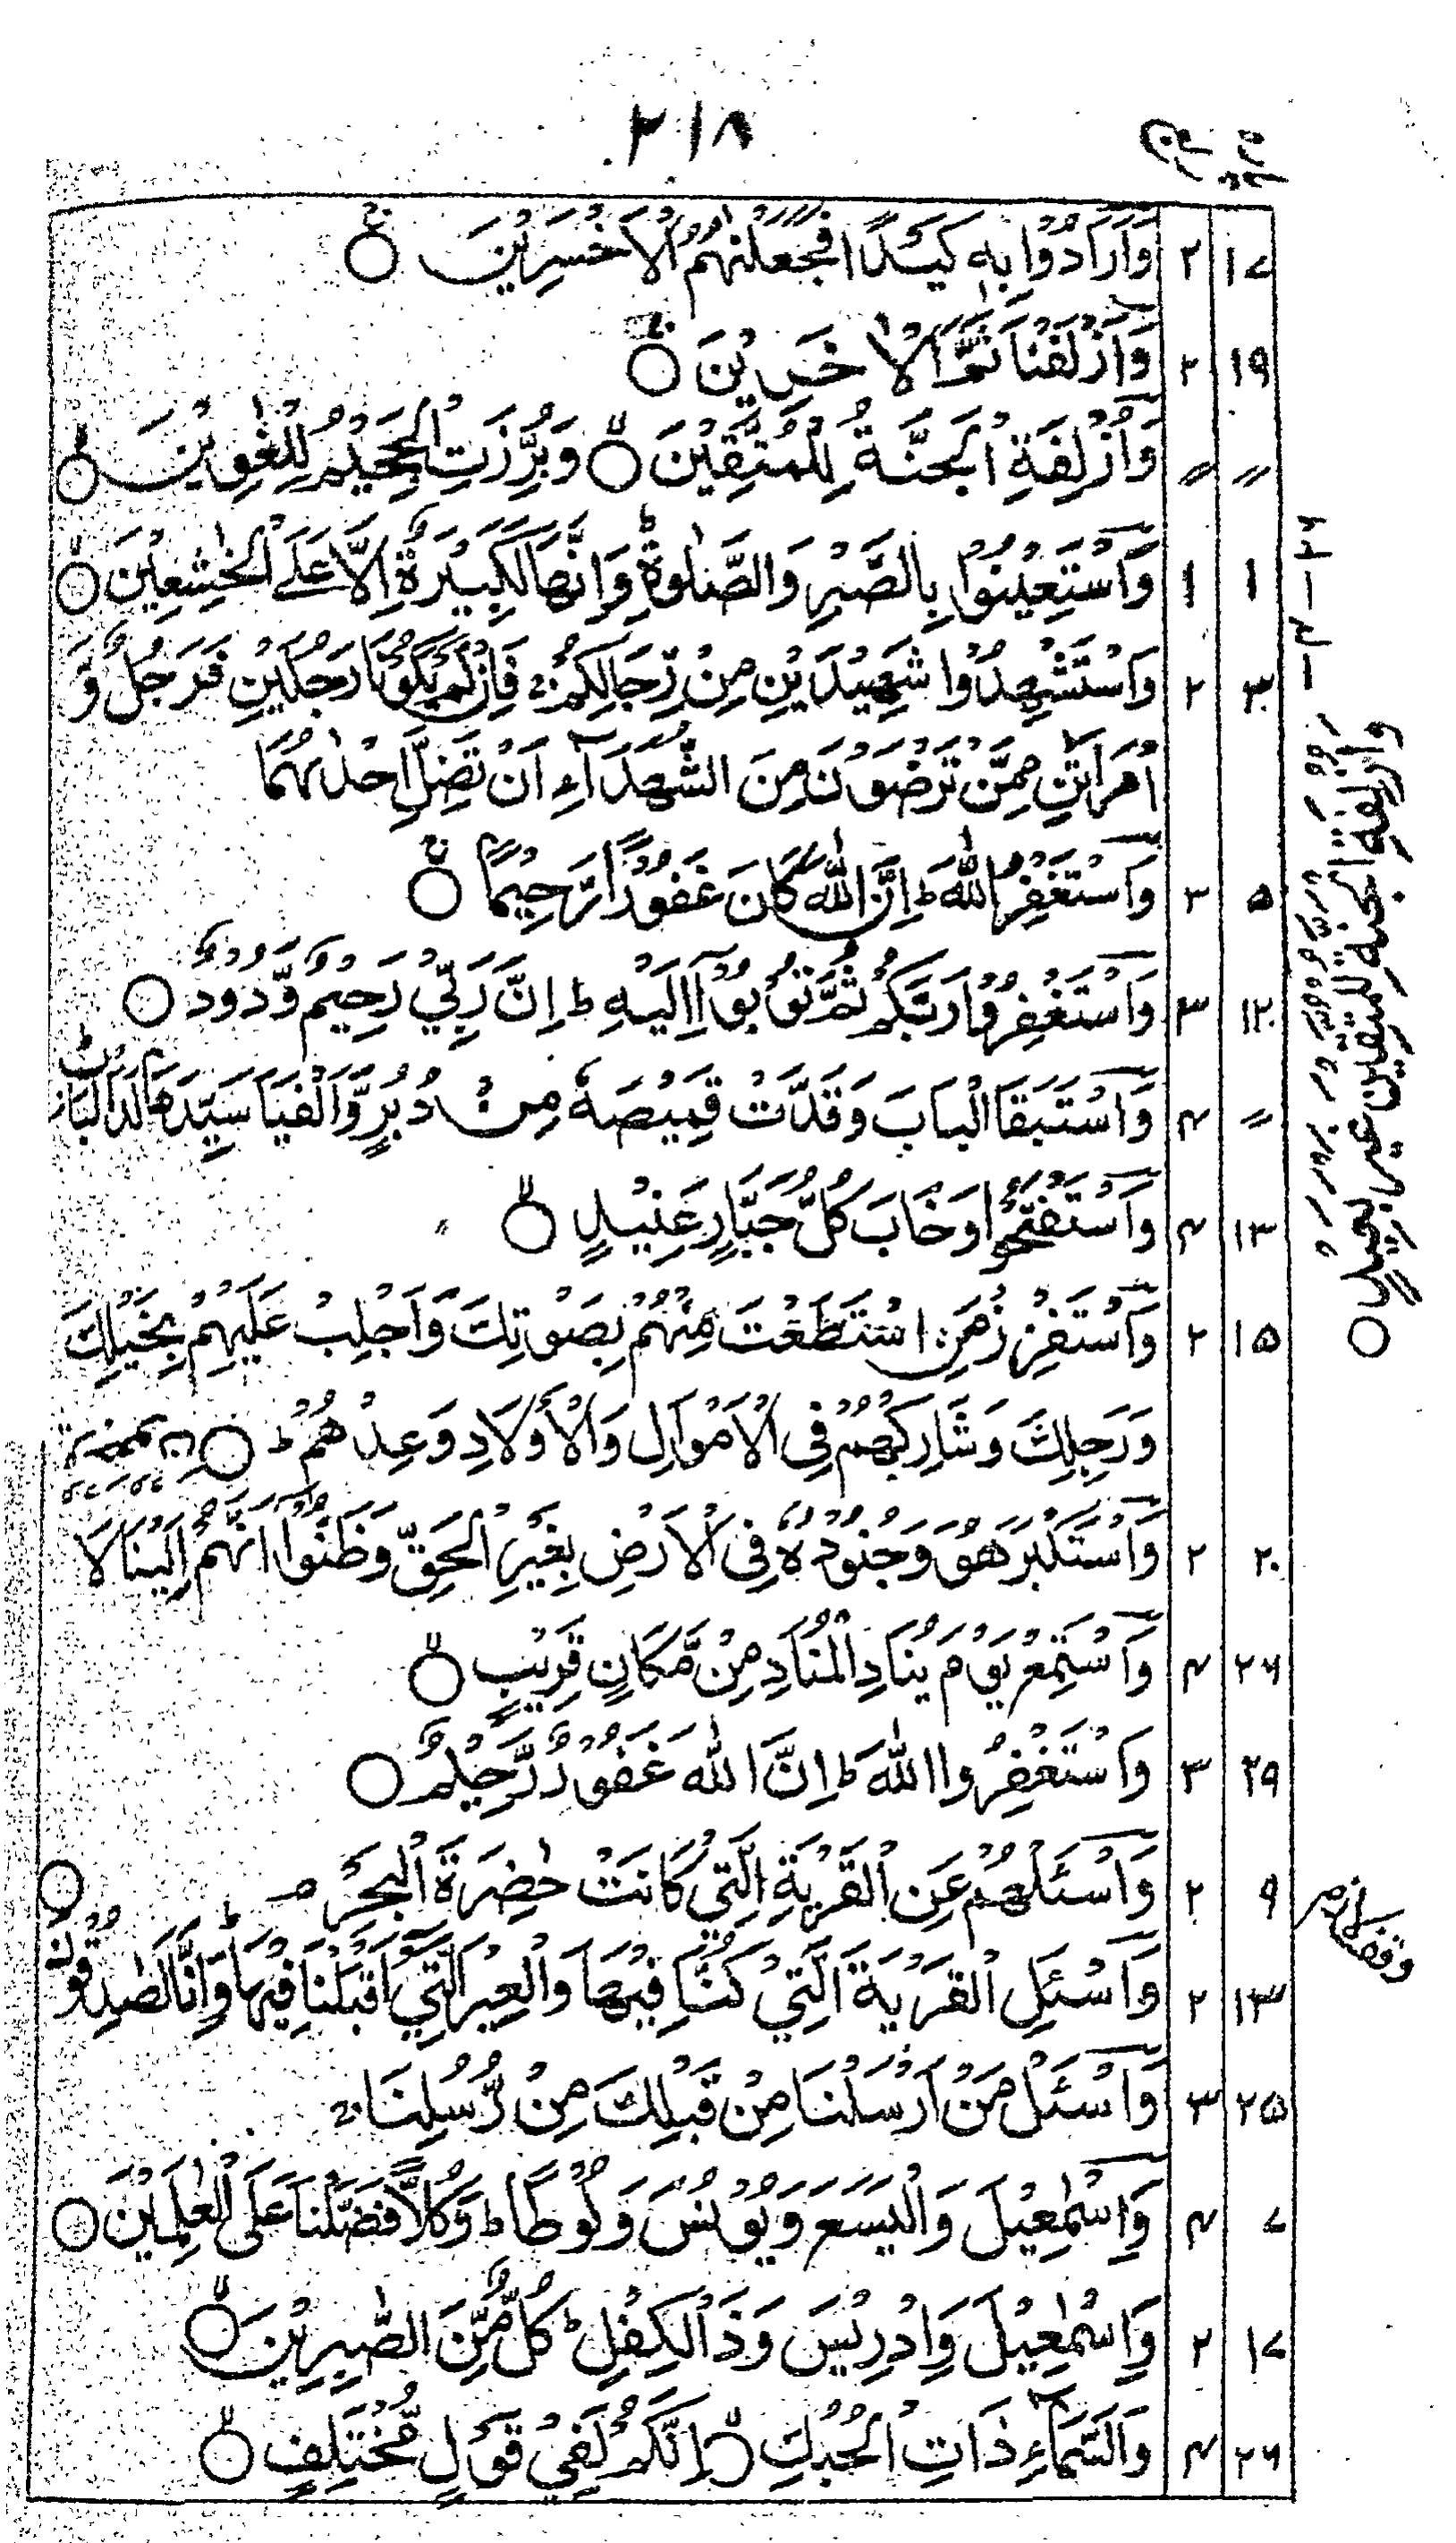 ۲۱۸
پارہ
۱۷ ۲ وَاَرَادُوْا بِهٖ كَيْدًا فَجَعَلْنٰهُمُ الْاَخْسَرِيْنَ ○
۱۹ ۲ وَاَزْلَفْنَا ثَمَّ الْاٰخَرِيْنَ ○
〃 〃 وَاُزْلِفَةِ الْجَنَّةُ لِلْمُتَّقِيْنَ ○ وَبُرِّزَتِ الْجَحِيْمُ لِلْغٰوِيْنَ ○
۱ ۱ وَاسْتَعِيْنُوْا بِالصَّبْرِ وَالصَّلٰوةِ ؕ وَاِنَّهَا لَكَبِيْرَةٌ اِلَّا عَلَى الْخٰشِعِيْنَ ○
۳ ۲ وَاسْتَشْهِدُوْا شَهِيْدَيْنِ مِنْ رِّجَالِكُمْ ۚ فَاِنْ لَّمْ يَكُوْنَا رَجُلَيْنِ فَرَجُلٌ وَّ
امْرَاَتٰنِ مِمَّنْ تَرْضَوْنَ مِنَ الشُّهَدَآءِ اَنْ تَضِلَّ اِحْدٰىهُمَا
۵ ۳ وَاسْتَغْفِرِ اللّٰهَ ؕ اِنَّ اللّٰهَ كَانَ غَفُوْرًا رَّحِيْمًا ○
۱۲ ۳ وَاسْتَغْفِرُوْا رَبَّكُمْ ثُمَّ تُوْبُوْآ اِلَيْهِ ؕ اِنَّ رَبِّيْ رَحِيْمٌ وَّدُوْدٌ ○
〃 ۴ وَاسْتَبَقَا الْبَابَ وَقَدَّتْ قَمِيْصَهٗ مِنْ دُبُرٍ وَّاَلْفَيَا سَيِّدَهَا لَدَا الْبَابِ ؕ
۱۳ ۴ وَاسْتَفْتَحُوْا وَخَابَ كُلُّ جَبَّارٍ عَنِيْدٍ ○
۱۵ ۲ وَاسْتَفْزِزْ مَنِ اسْتَطَعْتَ مِنْهُمْ بِصَوْتِكَ وَاَجْلِبْ عَلَيْهِمْ بِخَيْلِكَ
وَرَجِلِكَ وَشَارِكْهُمْ فِي الْاَمْوَالِ وَالْاَوْلَادِ وَعِدْهُمْ ؕ ○
۲۰ ۲ وَاسْتَكْبَرَ هُوَ وَجُنُوْدُهٗ فِي الْاَرْضِ بِغَيْرِ الْحَقِّ وَظَنُّوْٓا اَنَّهُمْ اِلَيْنَا لَا
۲۶ ۴ وَاسْتَمِعْ يَوْمَ يُنَادِ الْمُنَادِ مِنْ مَّكَانٍ قَرِيْبٍ ○
۲۹ ۳ وَاسْتَغْفِرُوا اللّٰهَ ؕ اِنَّ اللّٰهَ غَفُوْرٌ رَّحِيْمٌ ○
۹ ۲ وَاسْئَلْهُمْ عَنِ الْقَرْيَةِ الَّتِيْ كَانَتْ حٰضِرَةَ الْبَحْرِ م ○
۱۳ ۲ وَاسْئَلِ الْقَرْيَةَ الَّتِيْ كُنَّا فِيْهَا وَالْعِيْرَ الَّتِيْٓ اَقْبَلْنَا فِيْهَا ؕ وَاِنَّا لَصٰدِقُوْنَ
۲۵ ۳ وَاسْئَلْ مَنْ اَرْسَلْنَا مِنْ قَبْلِكَ مِنْ رُّسُلِنَا ۚ
۷ ۴ وَاِسْمٰعِيْلَ وَالْيَسَعَ وَيُوْنُسَ وَلُوْطًا ؕ وَكُلًّا فَضَّلْنَا عَلَى الْعٰلَمِيْنَ ○
۱۷ ۲ وَاِسْمٰعِيْلَ وَاِدْرِيْسَ وَذَا الْكِفْلِ ؕ كُلٌّ مِّنَ الصّٰبِرِيْنَ ○
۲۶ ۴ وَالسَّمَآءِ ذَاتِ الْحُبُكِ ○ اِنَّكُمْ لَفِيْ قَوْلٍ مُّخْتَلِفٍ ○
۲۶ – ۳ –
وازلفة الجنة للمتقين غير بعيد ○
وقف لازم